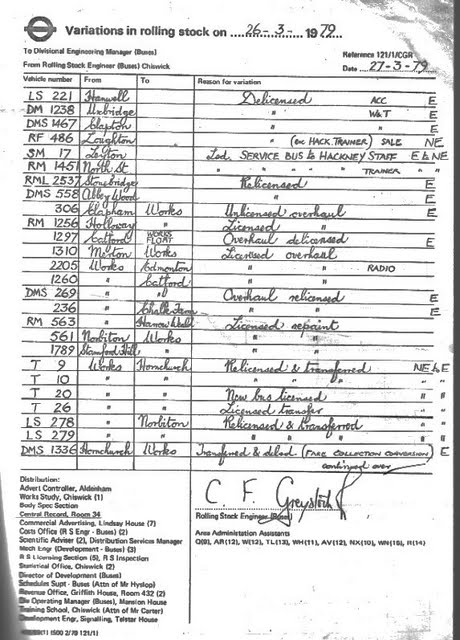 Variations in rolling stock on 26-3- 1979
To Divisional Engineering Manager (Buses)
Reference 121/1/CGR
From Rolling Stock Engineer (Buses) Chiswick
Date 27-3-79
Vehicle number From To Reason for variation
LS 221 Hanwell Delicensed ACC E
DM 1238 Uxbridge " W&T E
DMS 1467 Clapton " E
RF 486 Loughton " (ex HACK. TRAINER) SALE NE
SM 17 Leyton Lsd. SERVICE BUS to HACKNEY STAFF E & NE
RM 1451 North St. " " " TRAINER " "
RML 2537 Stonebridge Relicensed E
DMS 558 Abbey Wood " E
306 Clapham Works Unlicensed overhaul E
RM 1256 Holloway " Licensed "
1297 Catford WORKS FLOAT Overhaul delicensed E
1310 Merton Works Licensed overhaul
2205 Works Edmonton " " RADIO
1260 " Catford " "
DMS 269 " " Overhaul relicensed E
236 " Chalk Farm " " E
RM 563 " Harrow Weald Licensed repaint
561 Norbiton Works " "
1789 Stamford Hill " " "
T 9 Works Hornchurch Relicensed & transferred NE & E
T 10 " " " " " "
T 20 " " New bus licensed " "
T 26 " " Licensed transfer " "
LS 278 " Norbiton Relicensed & transferred " "
LS 279 " " " " " "
DMS 1336 Hornchurch Works Transferred & delsd (FARE COLLECTION CONVERSION) E
continued over
Distribution:
Advert Controller, Aldenham
Works Study, Chiswick (1)
Body Spec Section
Central Record, Room 34
Commercial Advertising, Lindsay House (7)
Costs Office (R S Engr - Buses) (2)
Scientific Adviser (2), Distribution Services Manager
Mech Engr (Development - Buses) (3)
R S Licensing Section (5), R S Inspection
Statistical Office, Chiswick (2)
Director of Development (Buses)
Schedules Supt - Buses (Attn of Mr Hyslop)
Revenue Office, Griffith House, Room 432 (2)
Operating Manager (Buses), Mansion House
Training School, Chiswick (Attn of Mr Carter)
Development Engr, Signalling, Telstar House
C. F. Greystock
Rolling Stock Engineer (Buses)
Area Administration Assistants
Q(9), AR(12), W(12), TL(13), WH(11), AV(12), NX(10), WN(15), R(14)
(1) 1500 2/79 121/1)